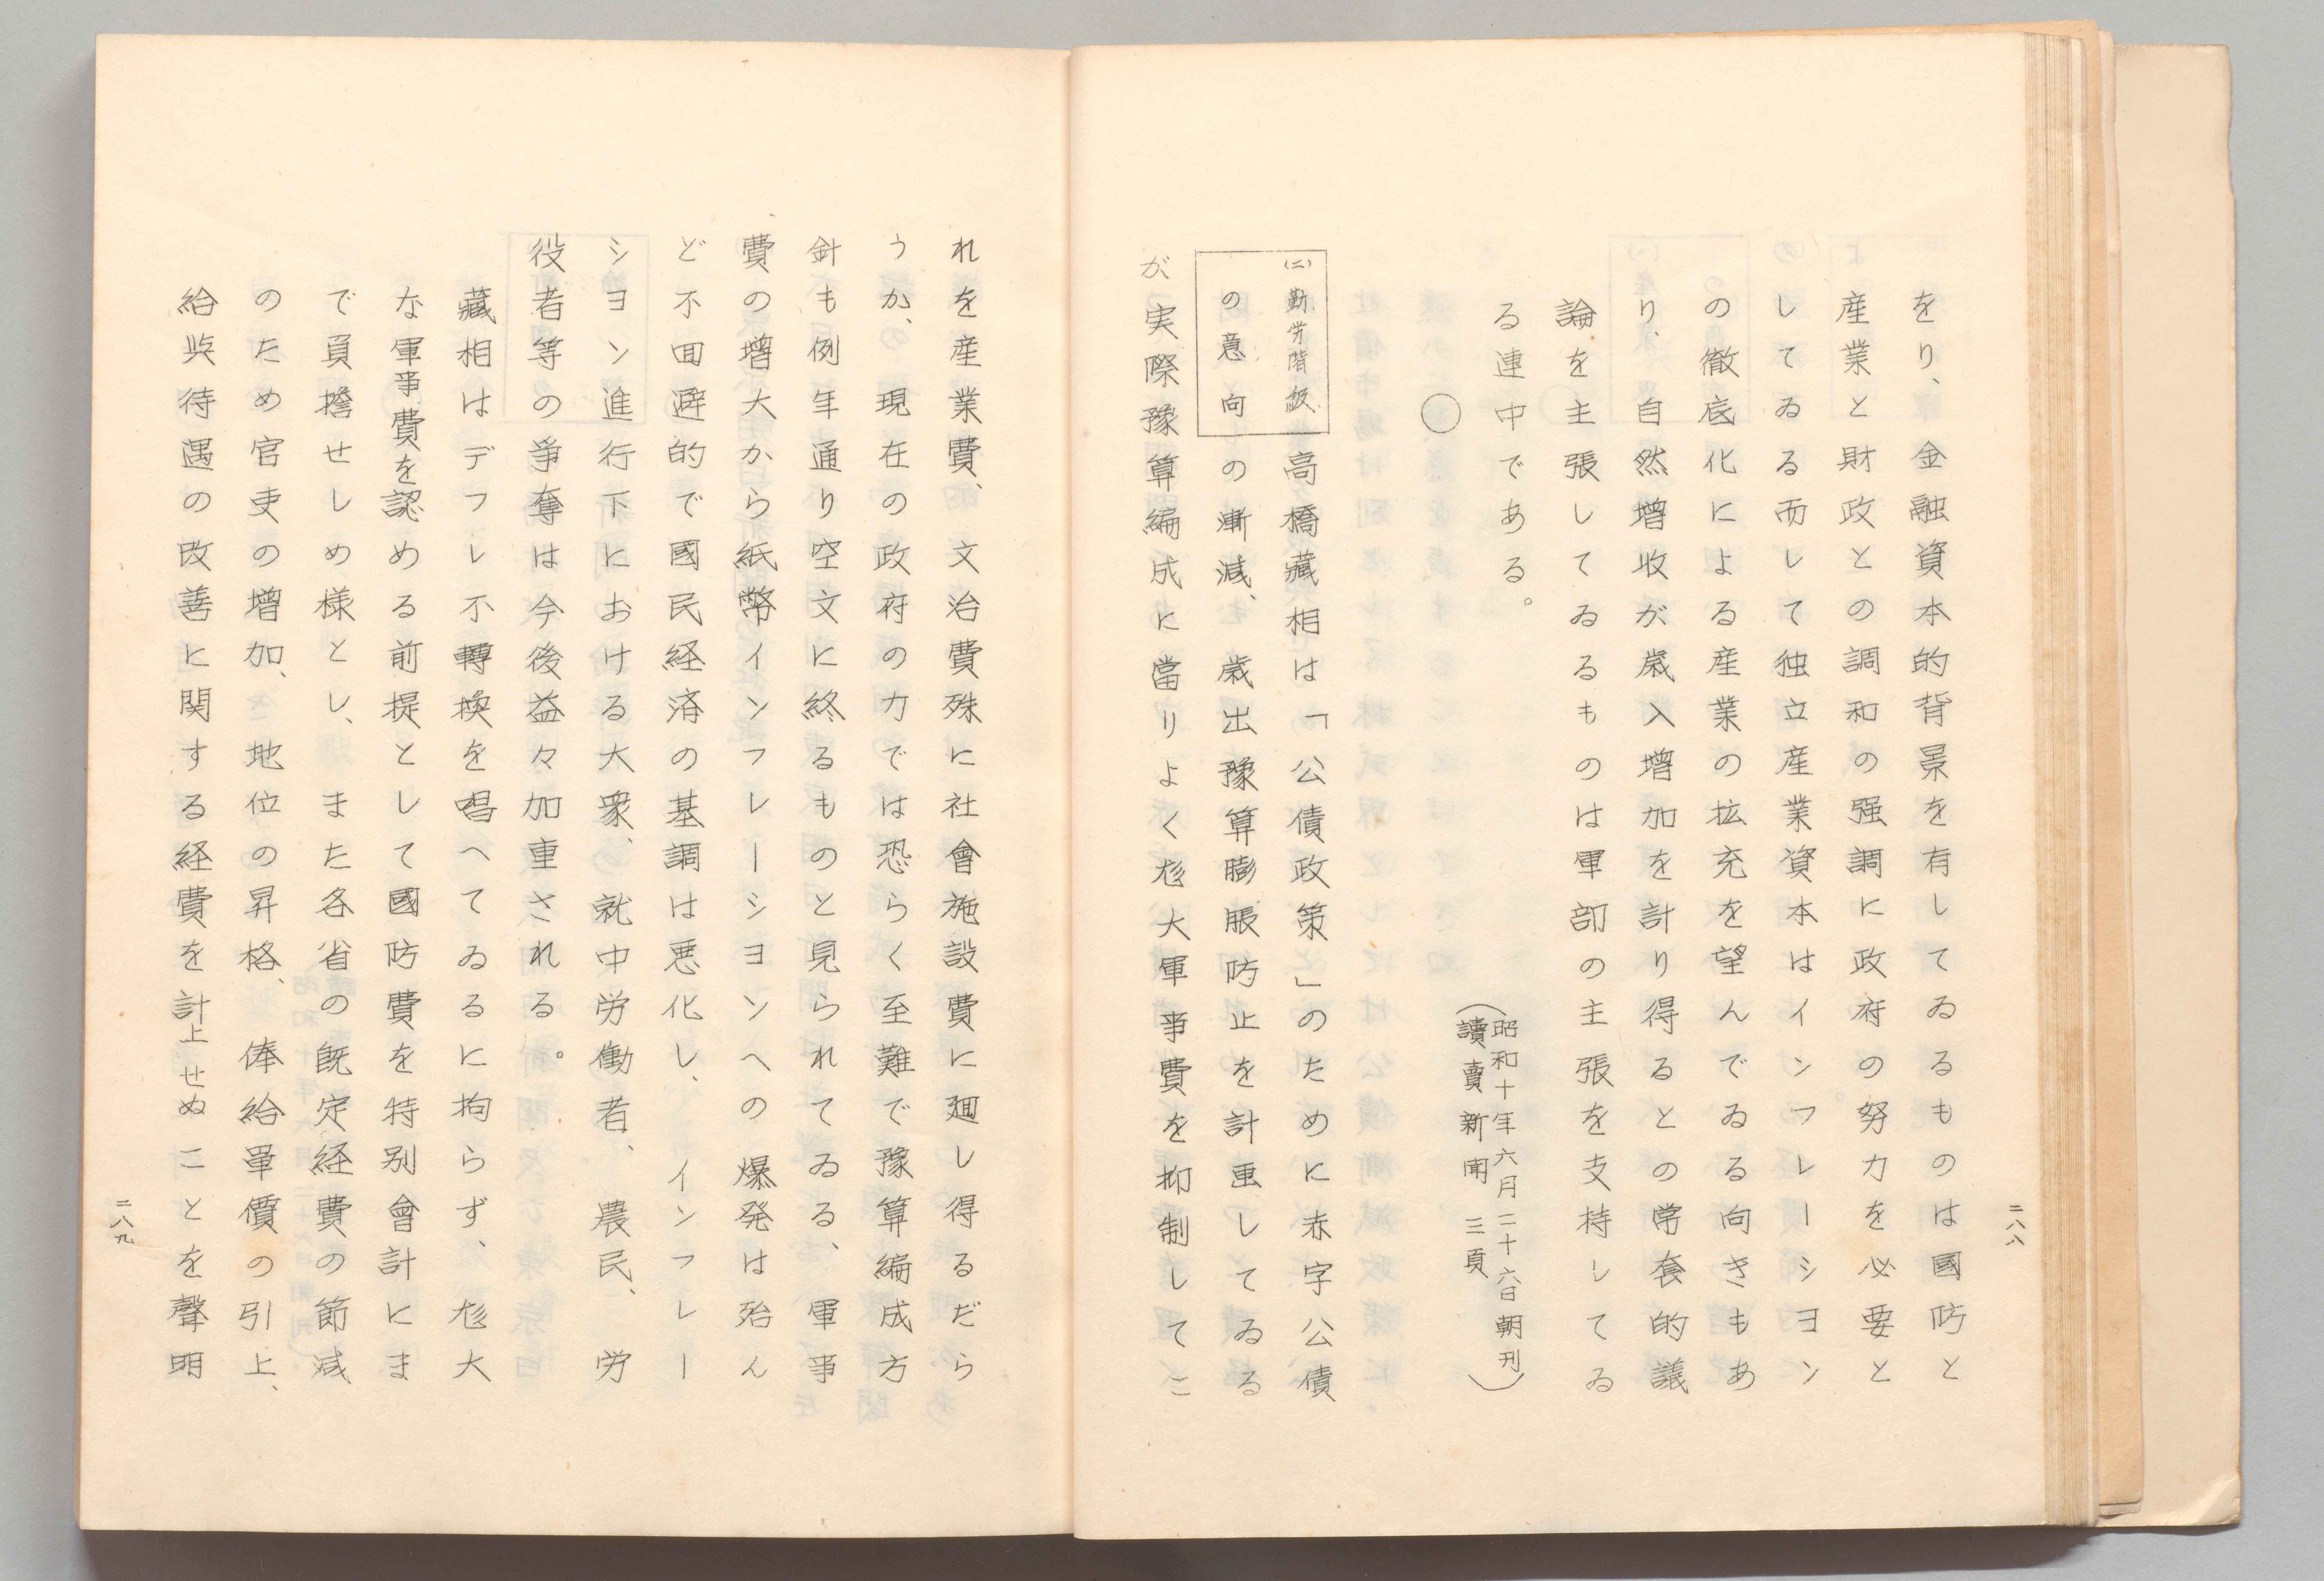 二八八
をり、金融資本的背景を有してゐるものは國防と
産業と財政との調和の强調に政府の努力を必要と
してゐる而して独立産業資本はインフレーシヨン
の徹底化による産業の拡充を望んでゐる向きもあ
り、自然增收が歳入增加を計り得るとの常套的議
論を主張してゐるものは軍部の主張を支持してゐ
る連中である。
（昭和十年六月二十六日朝刊
讀賣新聞 三頁）
○
(二)勤労階級、
の意向
高橋藏相は「公債政策」のために赤字公債
の漸減、歳出豫算膨脹防止を計画してゐる
が実際豫算編成に當りよく尨大軍事費を抑制してこ
れを産業費、文治費殊に社會施設費に廻し得るだら
うか、現在の政府の力では恐らく至難で豫算編成方
針も例年通り空文に終るものと見られてゐる、軍事
費の增大から紙幣インフレーシヨンへの爆発は殆ん
ど不回避的で國民経済の基調は悪化し、インフレー
シヨン進行下における大衆、就中労働者、農民、労
役者等の爭奪は今後益々加重される。
藏相はデフレ不轉換を唱へてゐるに拘らず、尨大
な軍事費を認める前提として國防費を特別會計にま
で負擔せしめ様とし、また各省の既定経費の節減
のため官吏の增加、地位の昇格、俸給單價の引上、
給與待遇の改善に関する経費を計上せぬことを聲明
二八九